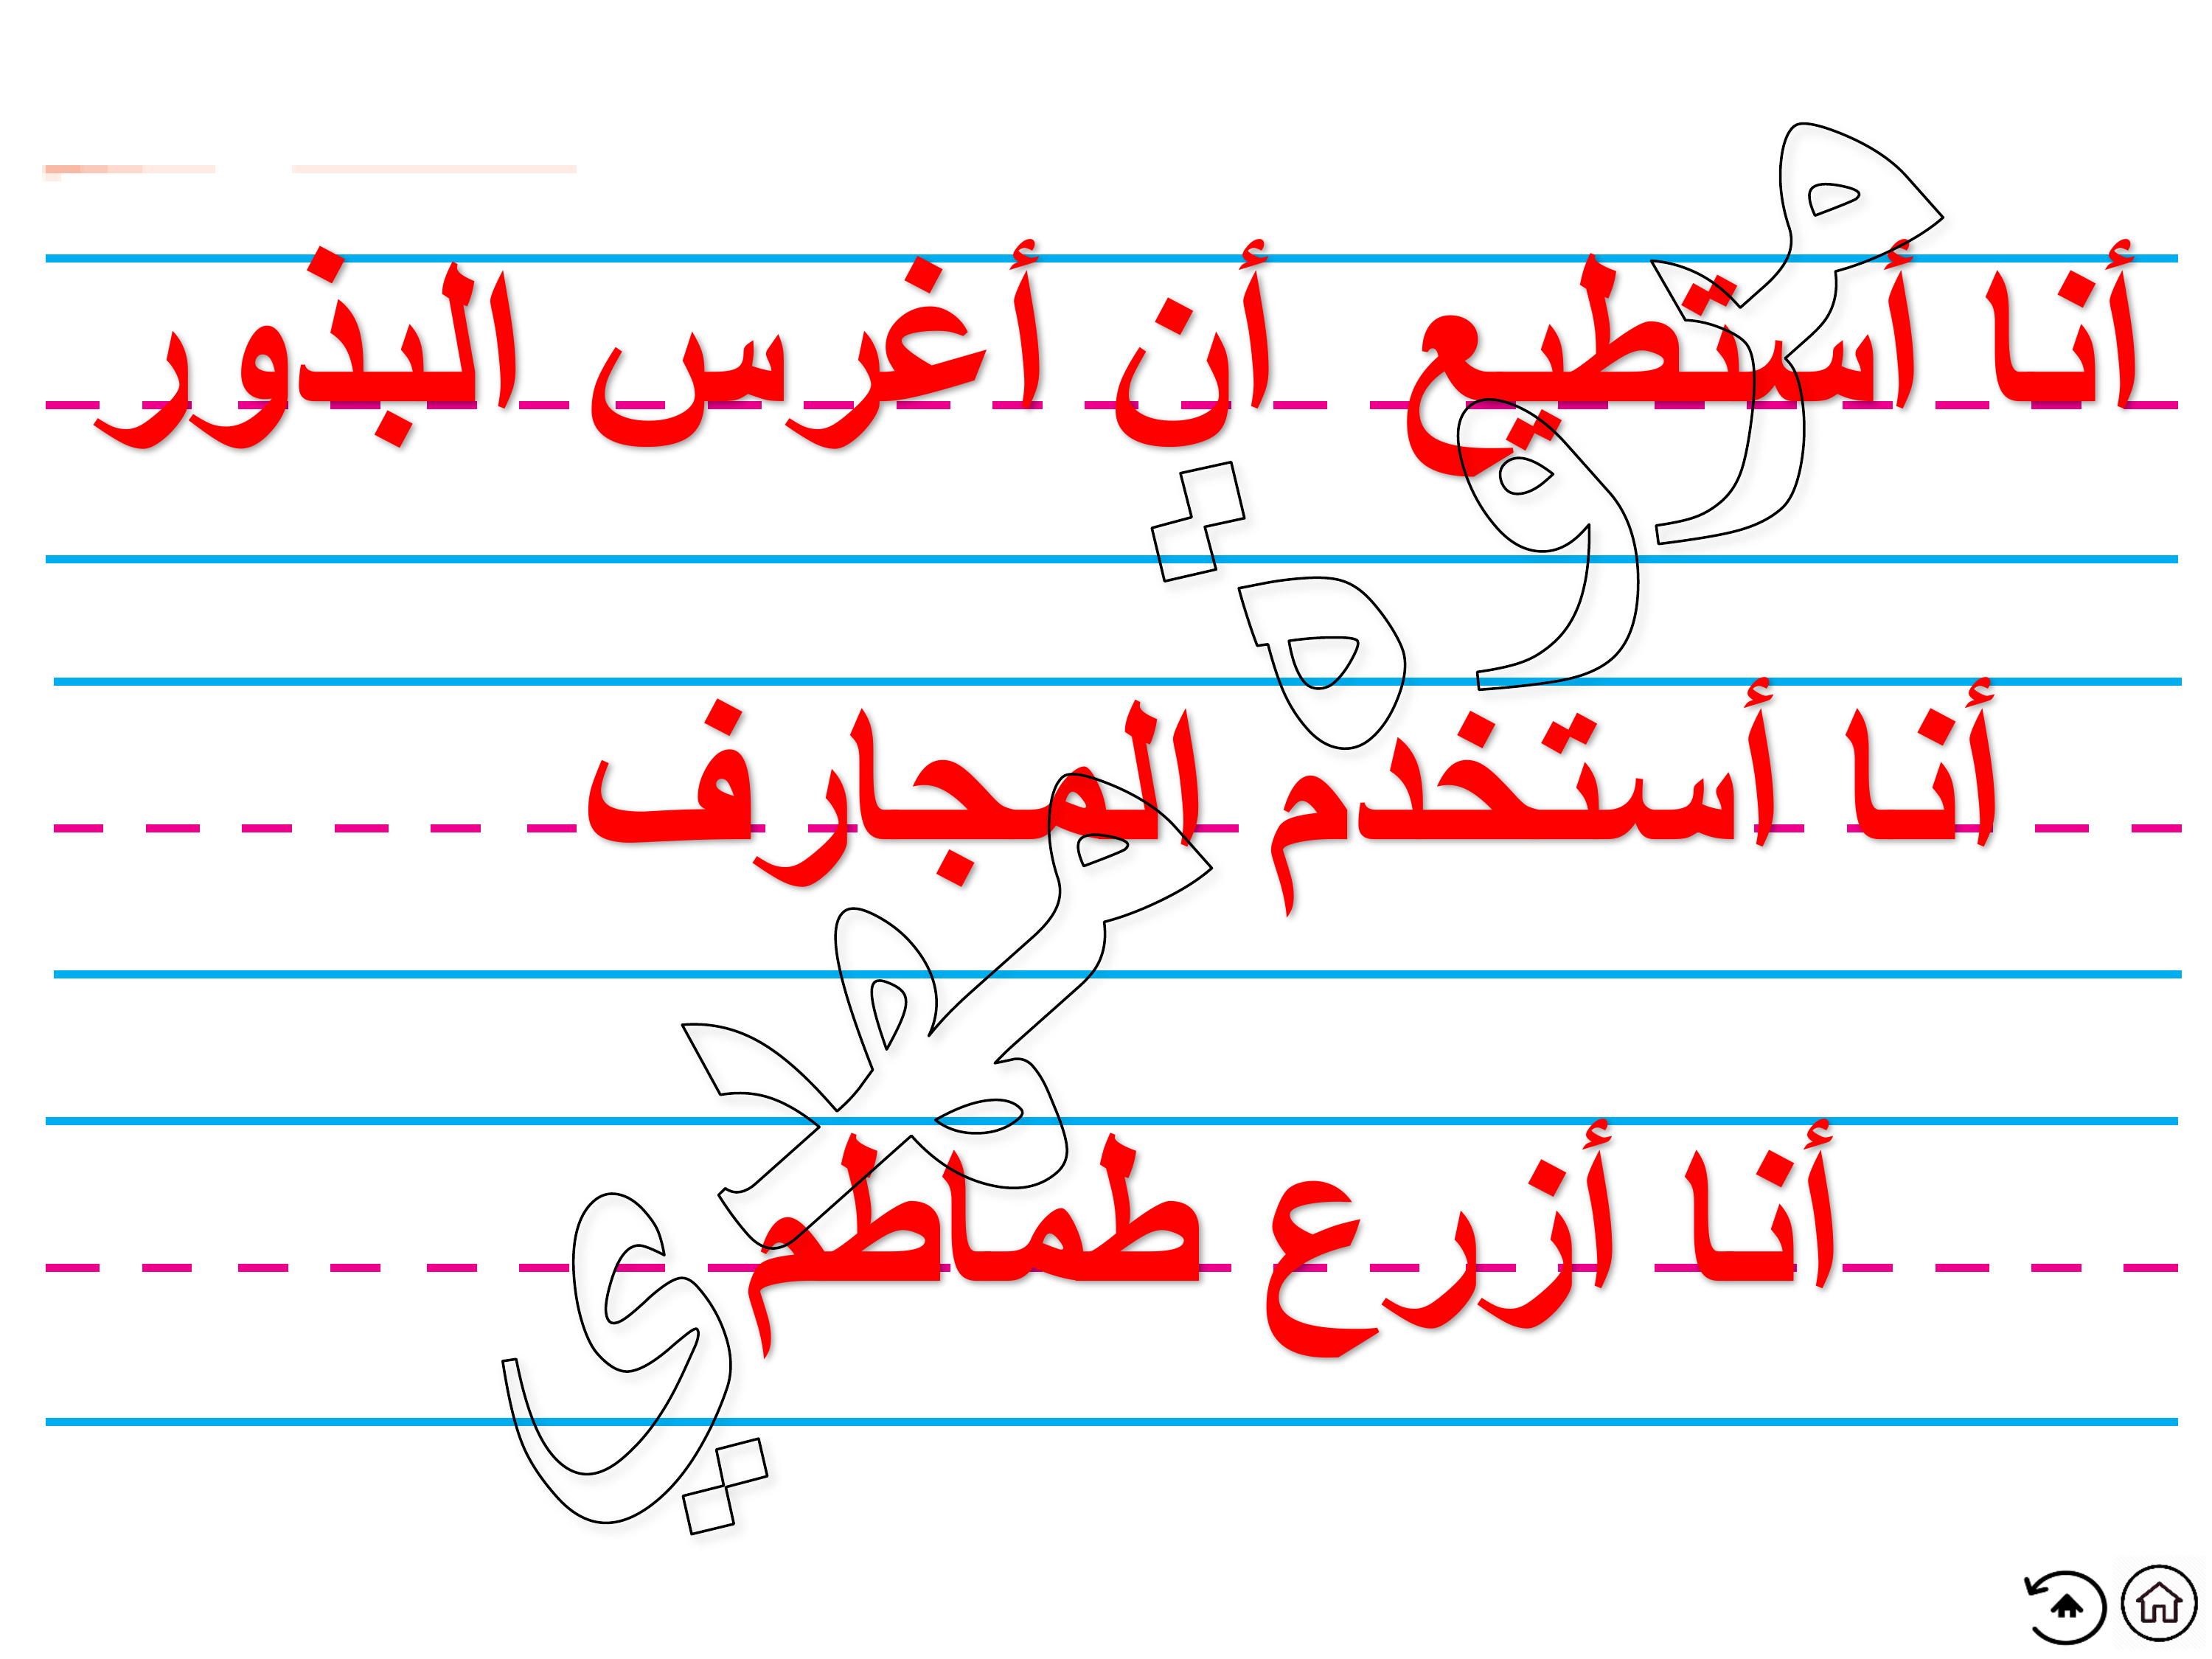 أنا أستطيع أن أغرس البذور
أنا أستخدم المجارف
أنا أزرع طماطم